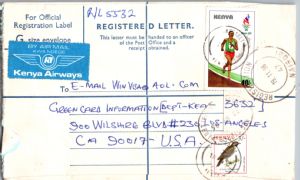 For Official
Registration Label
R/L 5532
REGISTERED LETTER.
G size envelope
This letter must be handed to an officer
of the Post Office and a
receipt obtained.
KENYA
BY AIR MAIL
PAR AVION
Kenya Airways
TO
E-MAIL WINVISA@AOL.COM
GREENCARD INFORMATION [DEPT-KEA 3632]
900 WILSHIRE BLVD #230 LOS-ANGELES
CA 90017-U.S.A.